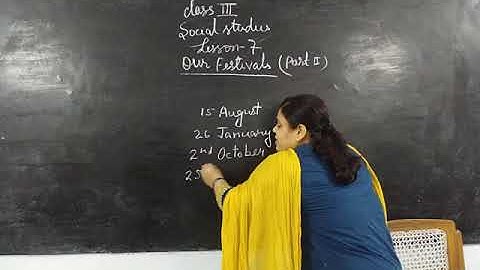 Class III
Social studies
Lesson-7
Our Festivals (Part II)
15 August
26 January
2nd October
25